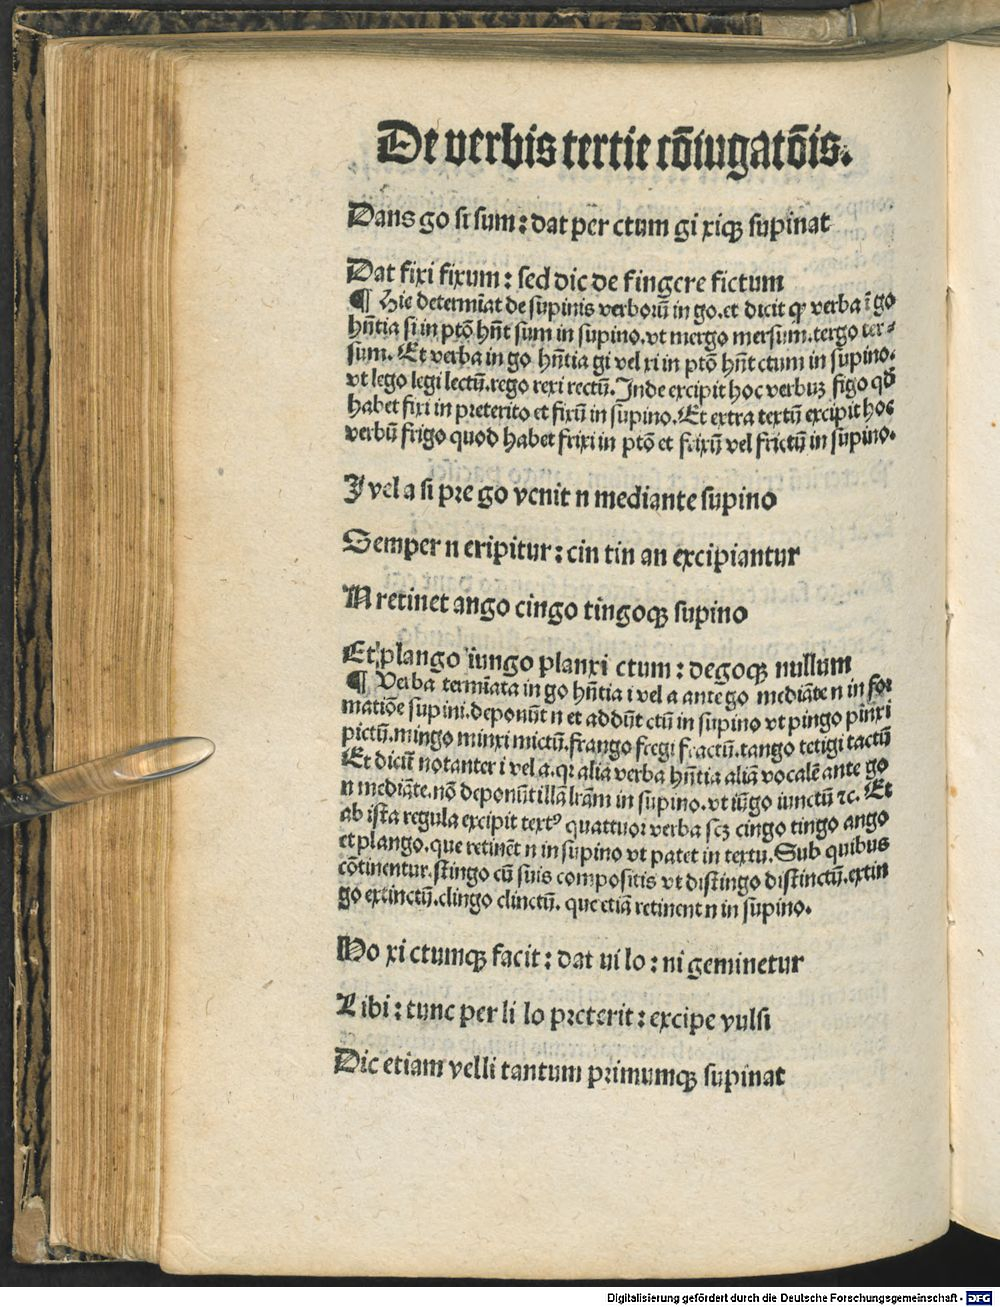 De verbis tertie cōiugatōis.
Dans go si sum: dat per ctum gi xiqꝫ supinat
Dat fixi fixum: sed dic de fingere fictum
¶ Hic determīat de supinis verborū in go. et dicit ꝙ verba ī go
hn̄tia si in ptō hn̄t sum in supino. vt mergo mersum. tergo ter⸗
sum. Et verba in go hn̄tia gi vel xi in ptō hn̄t ctum in supino.
vt lego legi lectū. rego rexi rectū. Inde excipit hoc verbuꝫ figo qd̄
habet fixi in preterito et fixū in supino. Et extra textū excipit hoc
verbū frigo quod habet frixi in ptō et frixū vel frictū in supino.
I vel a si pre go venit n mediante supino
Semper n eripitur: cin tin an excipiantur
N retinet ango cingo tingoqꝫ supino
Et plango iungo planxi ctum: degoqꝫ nullum
¶ Verba termīata in go hn̄tia i vel a ante go mediāte n in for
matiōe supini. deponūt n et addūt ctū in supino vt pingo pinxi
pictū. mingo minxi mictū. frango fregi fractū. tango tetigi tactū
Et dicit̄ notanter i vel a. qꝛ alia verba hn̄tia aliā vocalē ante go
n mediāte. nō deponūt illā lr̄am in supino. vt iūgo iunctū ⁊c. Et
ab ista regula excipit textꝰ quattuor verba scꝫ cingo tingo ango
et plango. que retinēt n in supino vt patet in textu. Sub quibus
cōtinentur. stingo cū suis compositis vt distingo distinctū. extin
go extinctū. clingo clinctū. que etiā retinent n in supino.
Ho xi ctumqꝫ facit: dat ui lo: ni geminetur
Libi: tunc per li lo preterit: excipe vulsi
Dic etiam velli tantum primumqꝫ supinat
Digitalisierung gefördert durch die Deutsche Forschungsgemeinschaft - DFG